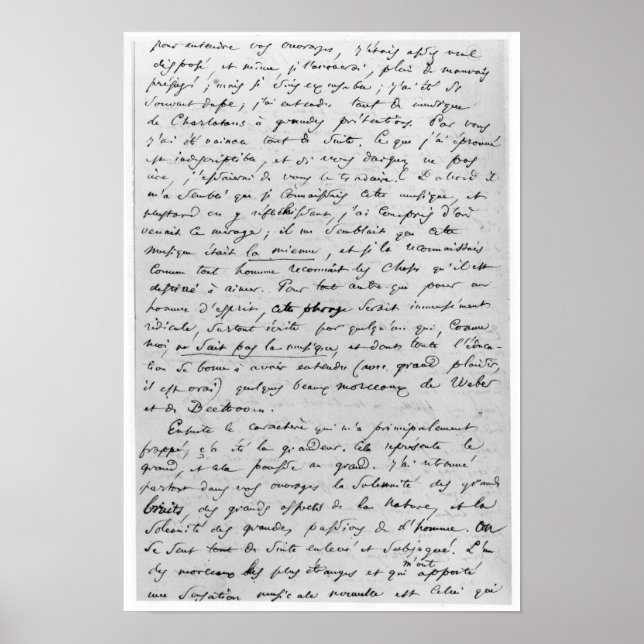 pour entendre vos ouvrages, j'étais assez mal
disposé et même je l'avouerai, plein de mauvais
préjugés ; mais je suis excusable ; j'ai été si
souvent dupe, j'ai entendu tant de musique
de charlatans à grandes prétentions. Par vous
j'ai été vaincu tout de suite. Ce que j'ai éprouvé
est indescriptible, et si vous daignez ne pas
rire, j'essaierai de vous le traduire. D'abord il
m'a semblé que je connaissais cette musique, et
plus tard en y réfléchissant, j'ai compris d'où
venait ce mirage ; il me semblait que cette
musique était la mienne, et je la reconnaissais
comme tout homme reconnaît les choses qu'il est
destiné à aimer. Pour tout autre que pour un
homme d'esprit, cette phrase serait immensément
ridicule, surtout écrite par quelqu'un qui, comme
moi, ne sait pas la musique, et dont toute l'éduca-
tion se borne à avoir entendu (avec grand plaisir,
il est vrai) quelques beaux morceaux de Weber
et de Beethoven.
Ensuite le caractère qui m'a principalement
frappé, ç'a été la grandeur. Cela représente le
grand, et cela pousse au grand. J'ai retrouvé
partout dans vos ouvrages la solennité des grands
bruits, des grands aspects de la Nature, et la
solennité des grandes passions de l'homme. On
se sent tout de suite enlevé et subjugué. L'un
des morceaux les plus étranges et qui m'ont apporté
une sensation musicale nouvelle est celui qui